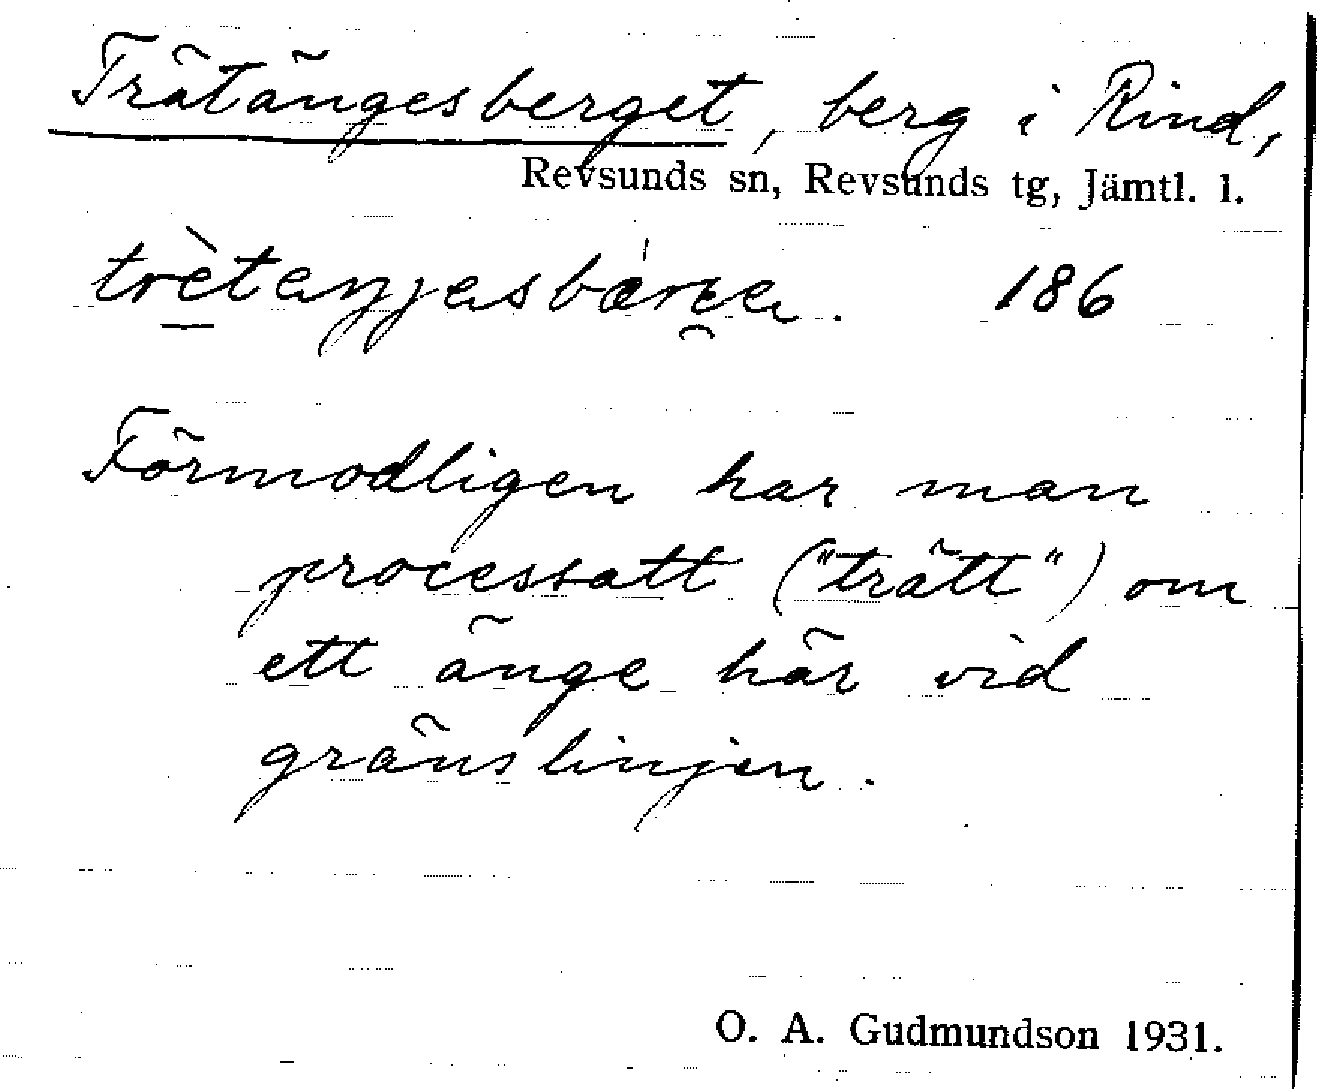 Trätängesberget, berg i Rind,
Revsunds sn, Revsunds tg, Jämtl. l.
186
Förmodligen har man
processatt ("trätt") om
ett änge här vid
gränslinjen.
O. A. Gudmundson 1931.